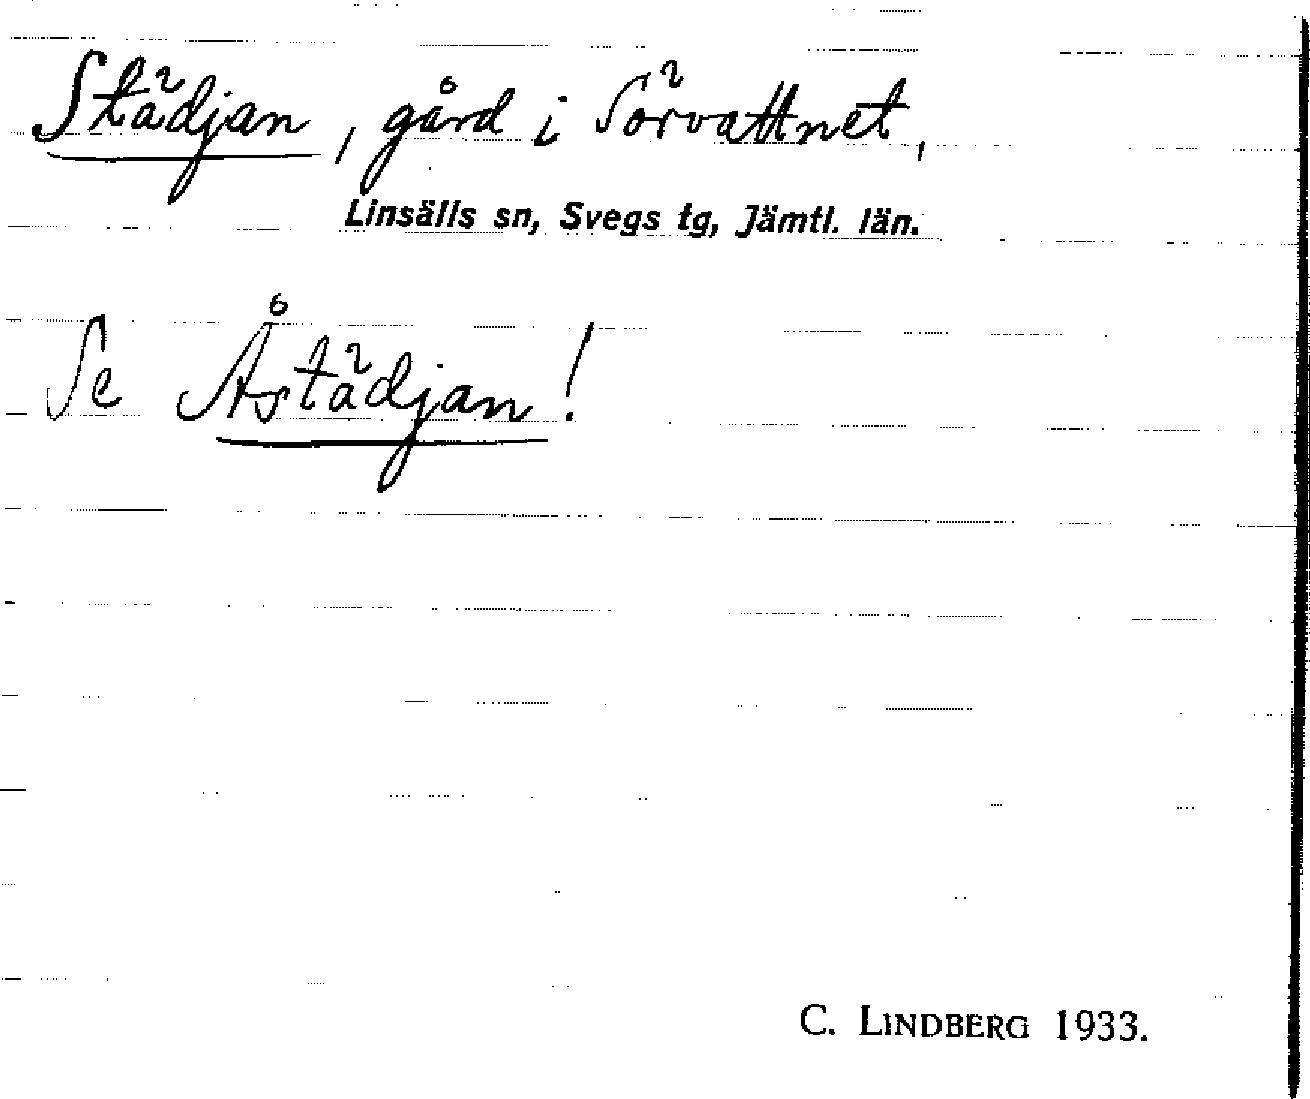 Städjan, gård i Sörvattnet,
Linsälls sn, Svegs tg, Jämtl. län.
Se Åstädjan!
C. LINDBERG 1933.